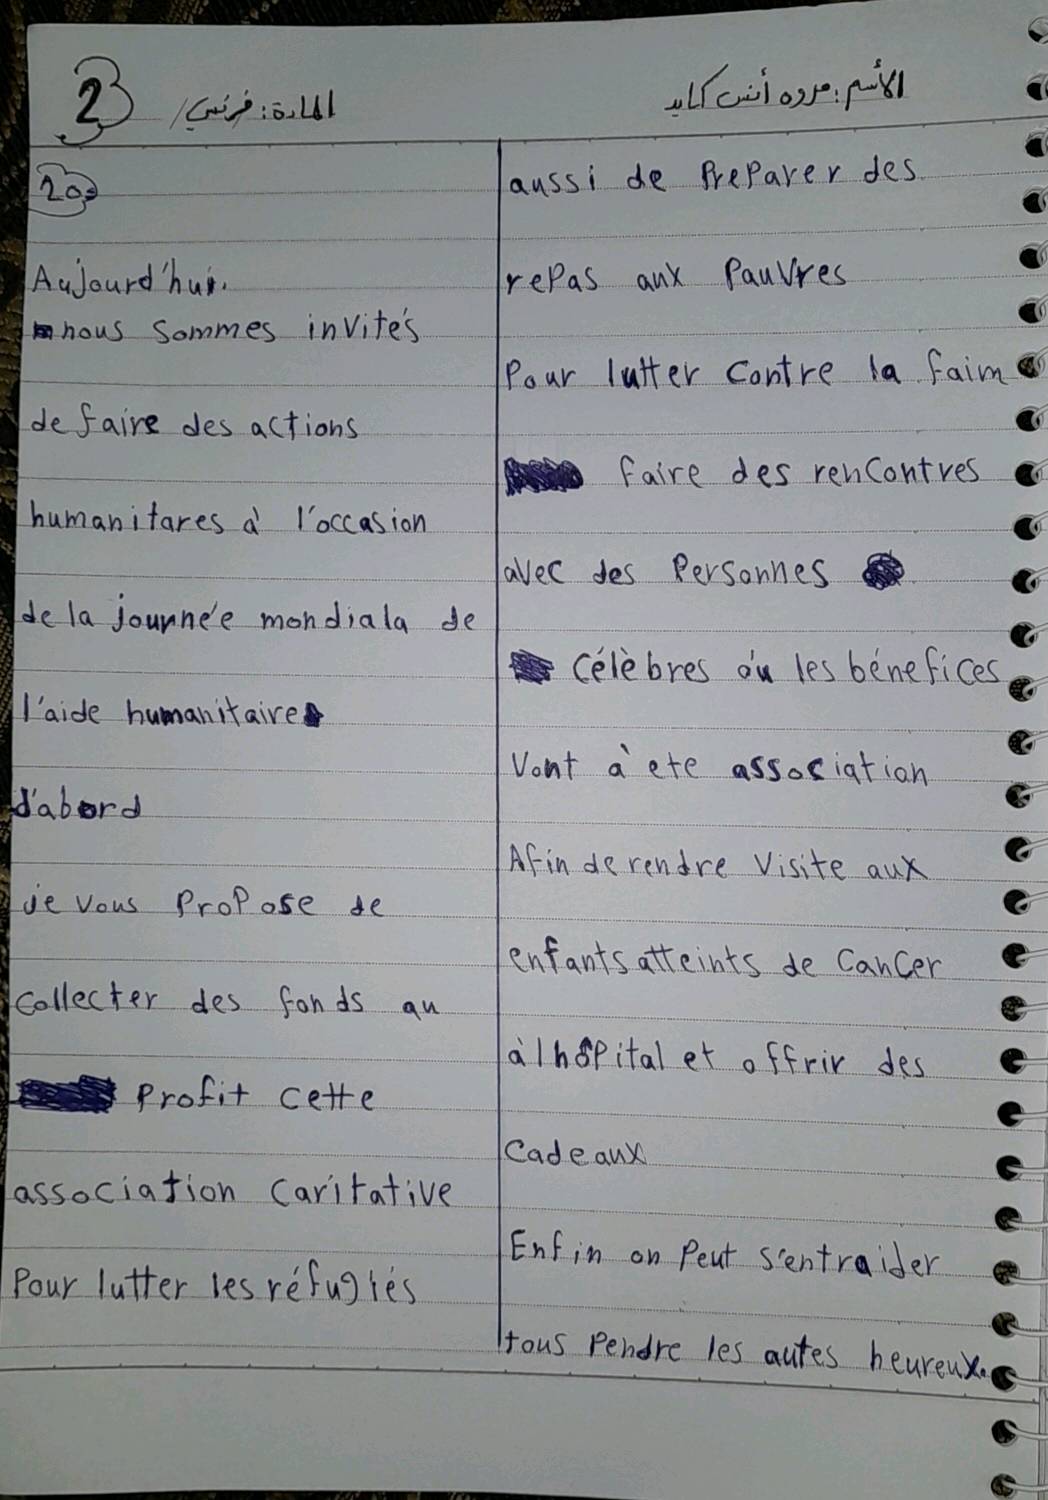 الأسم: مروه أنس كايد
المادة: فرنسي/
2
20
Aujourd'hui.
nous sommes invités
de faire des actions
humanitares à l'occasion
de la journée mondiala de
l'aide humanitaire
d'abord
je vous Propose de
Collecter des fonds au
Profit cette
association Caritative
Pour lutter les réfugiés
aussi de Preparer des
rePas aux Pauvres
Pour lutter Contre la faim
faire des renContres
avec des Personnes
Célèbres où les bénefices
Vont à ete association
Afin de rendre Visite aux
enfants atteints de CanCer
à l hôpital et offrir des
Cadeaux
Enfin on Peut s'entraider
tous Pendre les autes heureux.